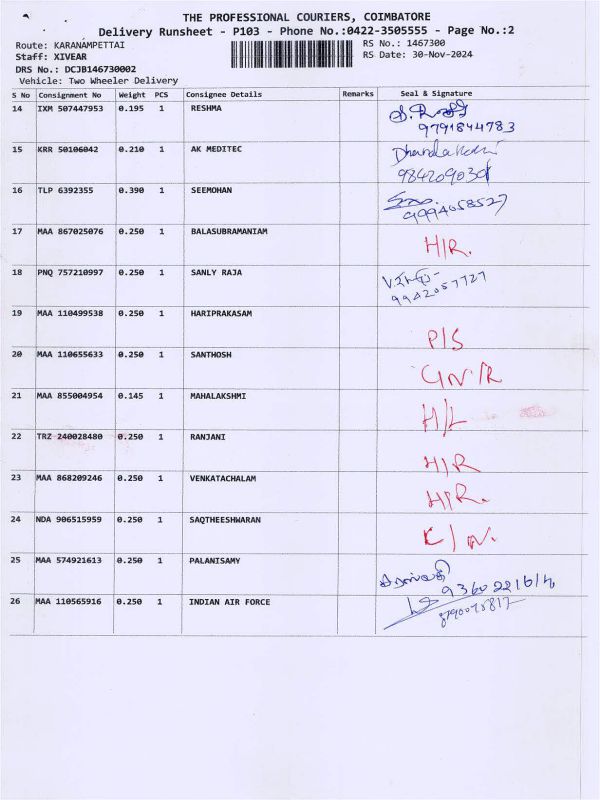 THE PROFESSIONAL COURIERS, COIMBATORE
Delivery Runsheet - P103 - Phone No.:0422-3505555 - Page No.:2
Route: KARANAMPETTAI RS No.: 1467300
Staff: XIVEAR RS Date: 30-Nov-2024
DRS No.: DCJB146730002
Vehicle: Two Wheeler Delivery
S No Consignment No Weight PCS Consignee Details Remarks Seal & Signature
14 IXM 507447953 0.195 1 RESHMA
9791844783
15 KRR 50106042 0.210 1 AK MEDITEC
16 TLP 6392355 0.390 1 SEEMOHAN
9994058527
17 MAA 867025076 0.250 1 BALASUBRAMANIAM H/R.
18 PNQ 757210997 0.250 1 SANLY RAJA
9942057727
19 MAA 110499538 0.250 1 HARIPRAKASAM P/S
20 MAA 110655633 0.250 1 SANTHOSH
21 MAA 855004954 0.145 1 MAHALAKSHMI H/L
22 TRZ 240028480 0.250 1 RANJANI H/R
23 MAA 868209246 0.250 1 VENKATACHALAM H/R.
24 NDA 906515959 0.250 1 SAQTHEESHWARAN
25 MAA 574921613 0.250 1 PALANISAMY
26 MAA 110565916 0.250 1 INDIAN AIR FORCE